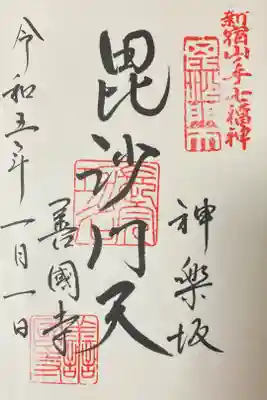 新宿山ノ手七福神
神樂坂
毘沙門天
善國寺
令和五年一月一日